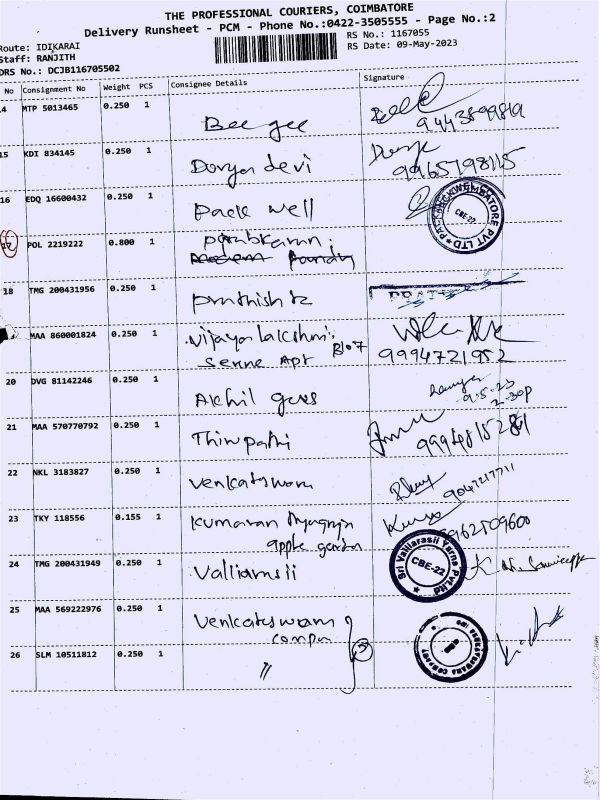 THE PROFESSIONAL COURIERS, COIMBATORE
Delivery Runsheet - PCM - Phone No.:0422-3505555 - Page No.:2
Route: IDIKARAI
Staff: RANJITH
DRS No.: DCJB116705502
RS No.: 1167055
RS Date: 09-May-2023
No Consignment No Weight PCS Consignee Details Signature
4 MTP 5013465 0.250 1 Bee gee
15 KDI 834145 0.250 1 Dorga devi
9965798115
16 EDQ 16600432 0.250 1 Pack well
CBE-22
17 POL 2219222 0.800 1
foundry
18 TMG 200431956 0.250 1
MAA 860001824 0.250 1 vijaya lakshmi
Apt
9994721952
20 DVG 81142246 0.250 1 Akhil
9.5.23
2.30p
21 MAA 570770792 0.250 1 Thirupathi
22 NKL 3183827 0.250 1 venkateswara
9047217711
23 TKY 118556 0.155 1 kumaran
apple garden
24 TMG 200431949 0.250 1 Valliarasii
Sri Valliarasii Yarns Pvt Ltd
CBE-22
25 MAA 569222976 0.250 1 Venkateswara
26 SLM 10511812 0.250 1 "